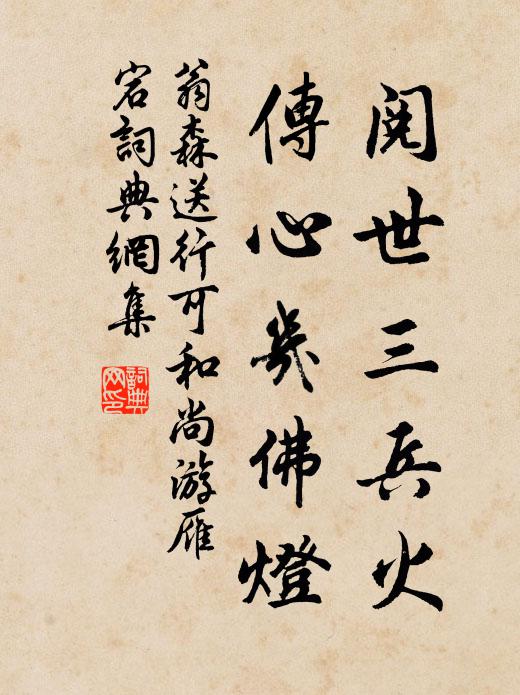 閱世三兵火
傳心幾佛燈
翁森送行可和尚游雁
宕詞典網集
詞典网印